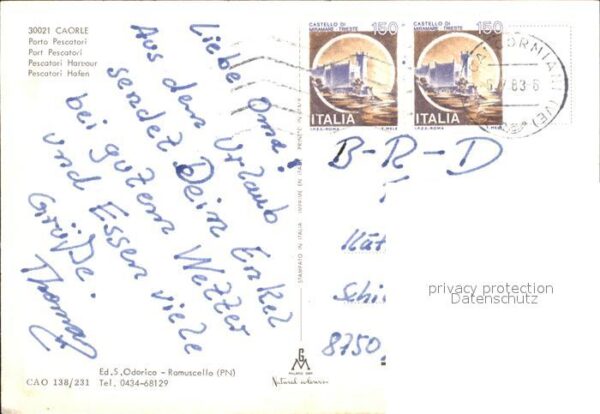 30021 CAORLE
Porto Pescatori
Port Pescatori
Pescatori Harvour
Pescatori Hafen
Liebe Oma!
Aus dem Urlaub
sendet Dein Enkel
bei gutem Wetter
und Essen viele
Grüße.
Thomas
CASTELLO DI
MIRAMARE - TRIESTE
150
ITALIA
I.P.Z.S.-ROMA
E. MELE
CASTELLO DI
MIRAMARE - TRIESTE
150
ITALIA
I.P.Z.S.-ROMA
E. MELE
(VE)
B-R-D
Schi
8750
privacy protection
Datenschutz
STAMPATO IN ITALIA - IMPRIME EN ITALIE - PRINTED IN ITALY
Ed. S. Odorico - Ramuscello (PN)
Tel. 0434-68129
CAO 138/231